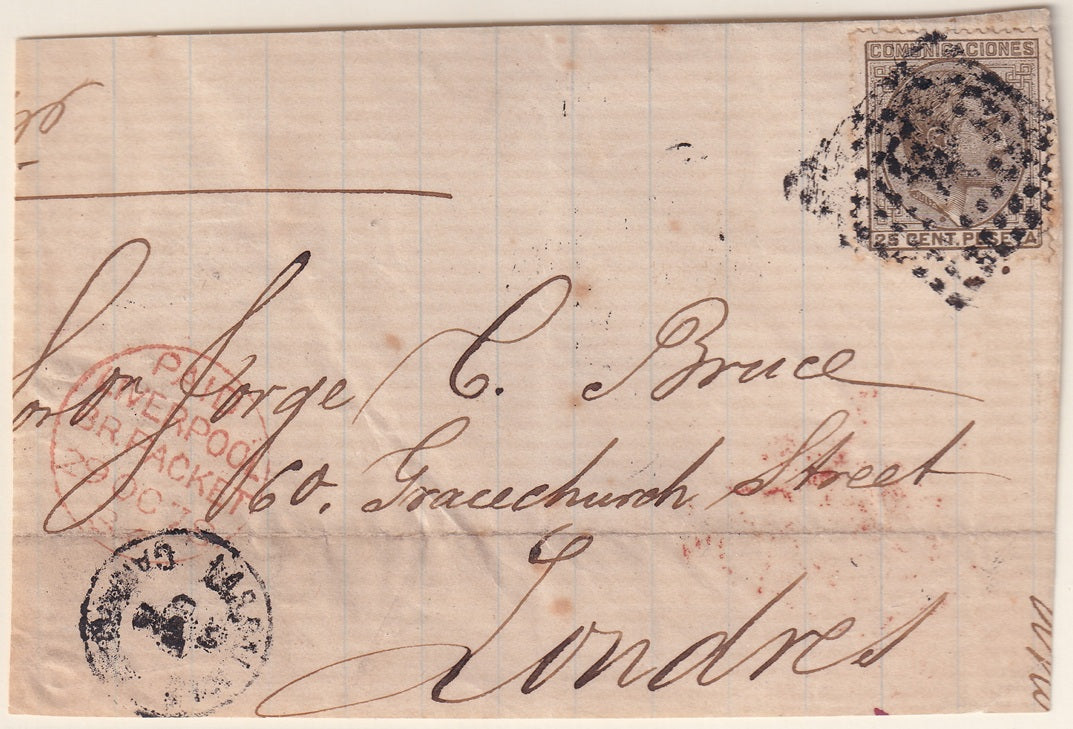 COMUNICACIONES
25 CENT. PESETA
Jorge C. Bruce
60, Gracechurch Street
Londres
PAID
LIVERPOOL
BR. PACKET
29 OC 7